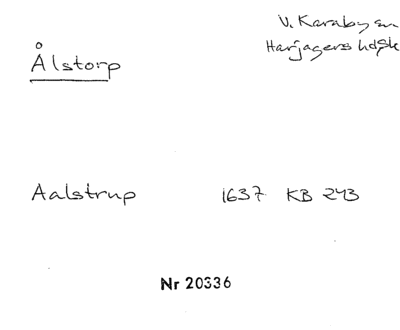 V. Karaby sn
Harjagers hd Sk
Ålstorp
Aalstrup 1637 KB 243
Nr 20336